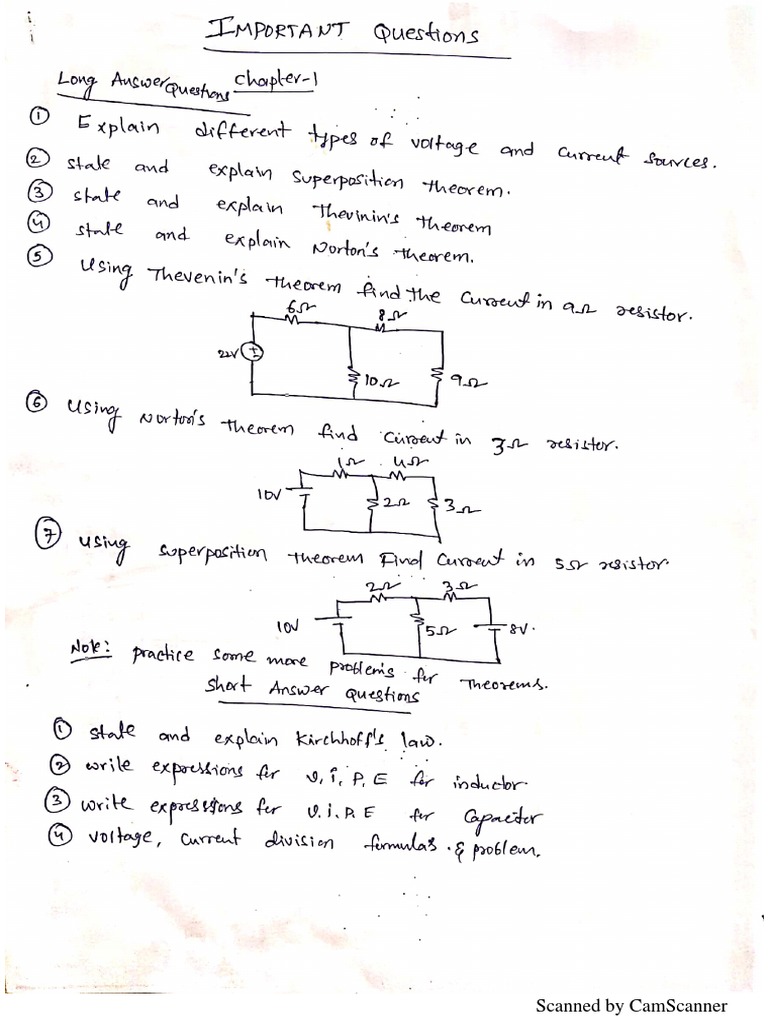 IMPORTANT Questions
Long Answer Questions Chapter-1
① Explain different types of voltage and current sources.
② state and explain superposition theorem.
③ state and explain Thevinin's Theorem
④ state and explain Norton's theorem.
⑤ Using Thevenin's theorem find the current in 9Ω resistor.
6Ω 8Ω
22V 10Ω 9Ω
⑥ Using Norton's theorem find current in 3Ω resistor.
1Ω 4Ω
10V 2Ω 3Ω
⑦ Using superposition Theorem Find current in 5Ω resistor.
2Ω 3Ω
10V 5Ω 8V.
Note: practice some more problems for Theorems.
Short Answer Questions
① state and explain Kirchhoff's law.
② write expressions for v, i, P, E for inductor.
③ write expressions for v. i. P. E for Capacitor
④ voltage, current division formulas. & problem.
Scanned by CamScanner